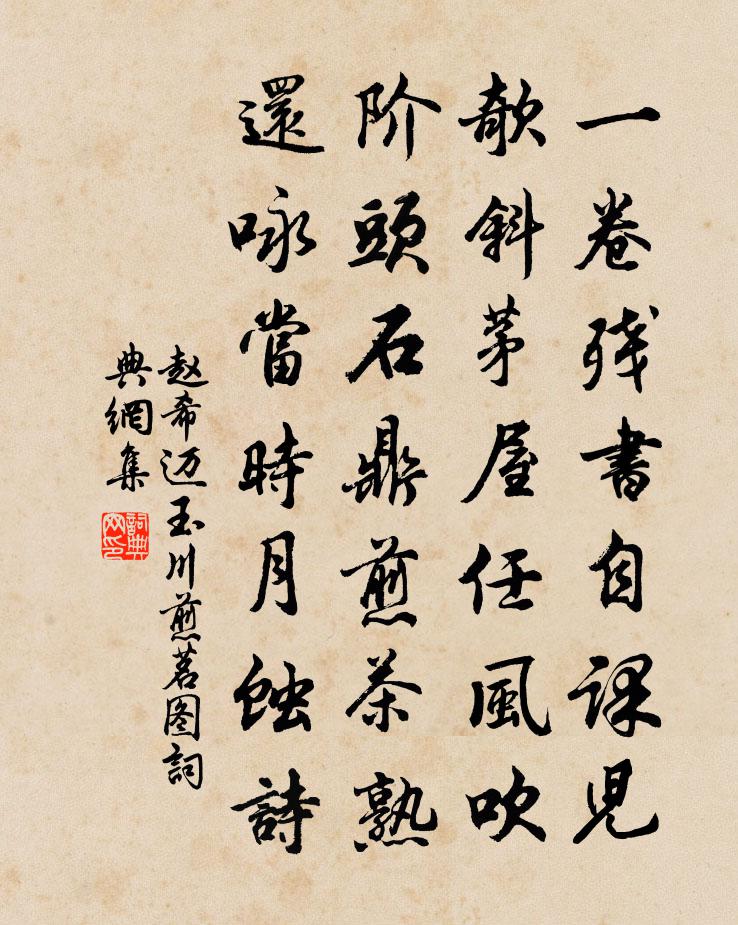 一卷残書自课児
欹斜茅屋任風吹
阶頭石鼎煎茶熟
還咏當時月蝕詩
赵希迈玉川煎茗图詞
典網集
詞典
网印